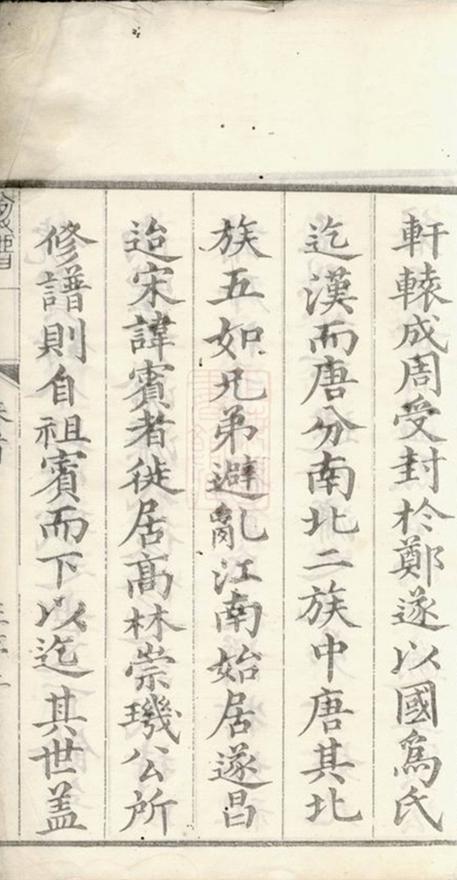 軒轅成周受封於鄭遂以國爲氏
迄漢而唐分南北二族中唐其北
族五如兄弟避亂江南始居遂昌
迨宋諱賓者徙居髙林崇璣公所
修譜則自祖賓而下以迄其世盖